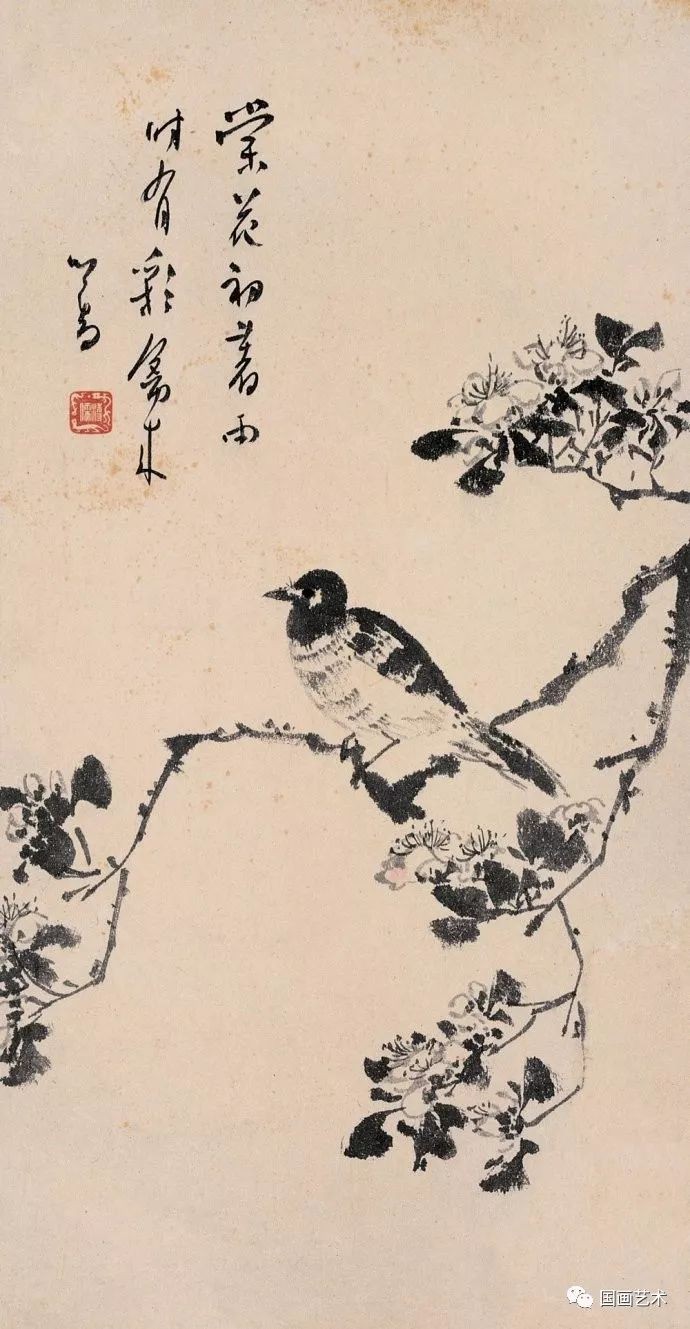 棠花初著雨
时有彩禽来
心畬
国画艺术